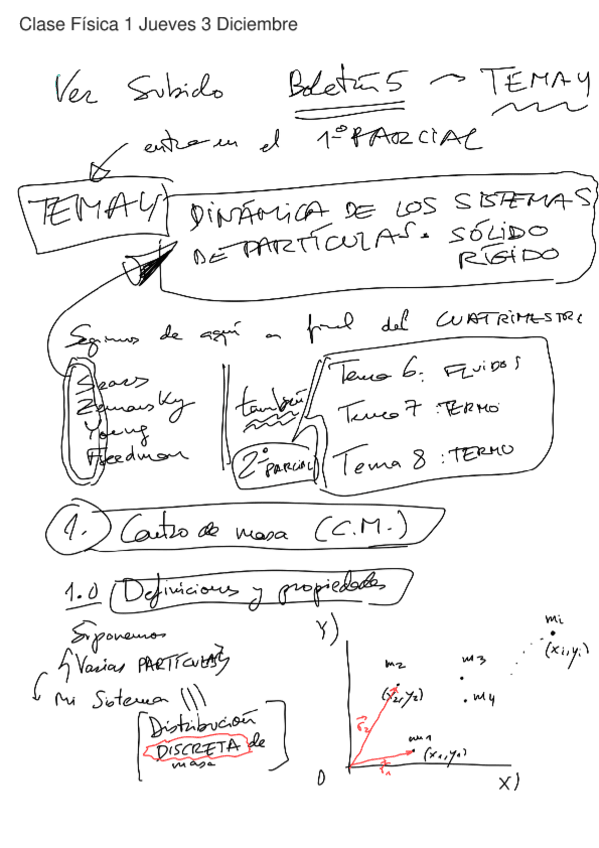 Clase Física 1 Jueves 3 Diciembre
Ver Subido Boletín 5 → TEMA 4
entra en el 1º PARCIAL
TEMA 4
DINÁMICA DE LOS SISTEMAS
DE PARTÍCULAS. SÓLIDO
RÍGIDO
Seguimos de aquí a final del CUATRIMESTRE
Sears
Zemansky
Young
Freedman
también
2º PARCIAL
Tema 6: FLUIDOS
Tema 7: TERMO
Tema 8: TERMO
1. Centro de masa (C.M.)
1.0 Definiciones y propiedades
Suponemos
Varias PARTÍCULAS
Mi Sistema
Distribución
DISCRETA de
masa
Y)
m2
(x2, y2)
r2
m3
m4
mi
(xi, yi)
m1
(x1, y1)
r1
O
X)